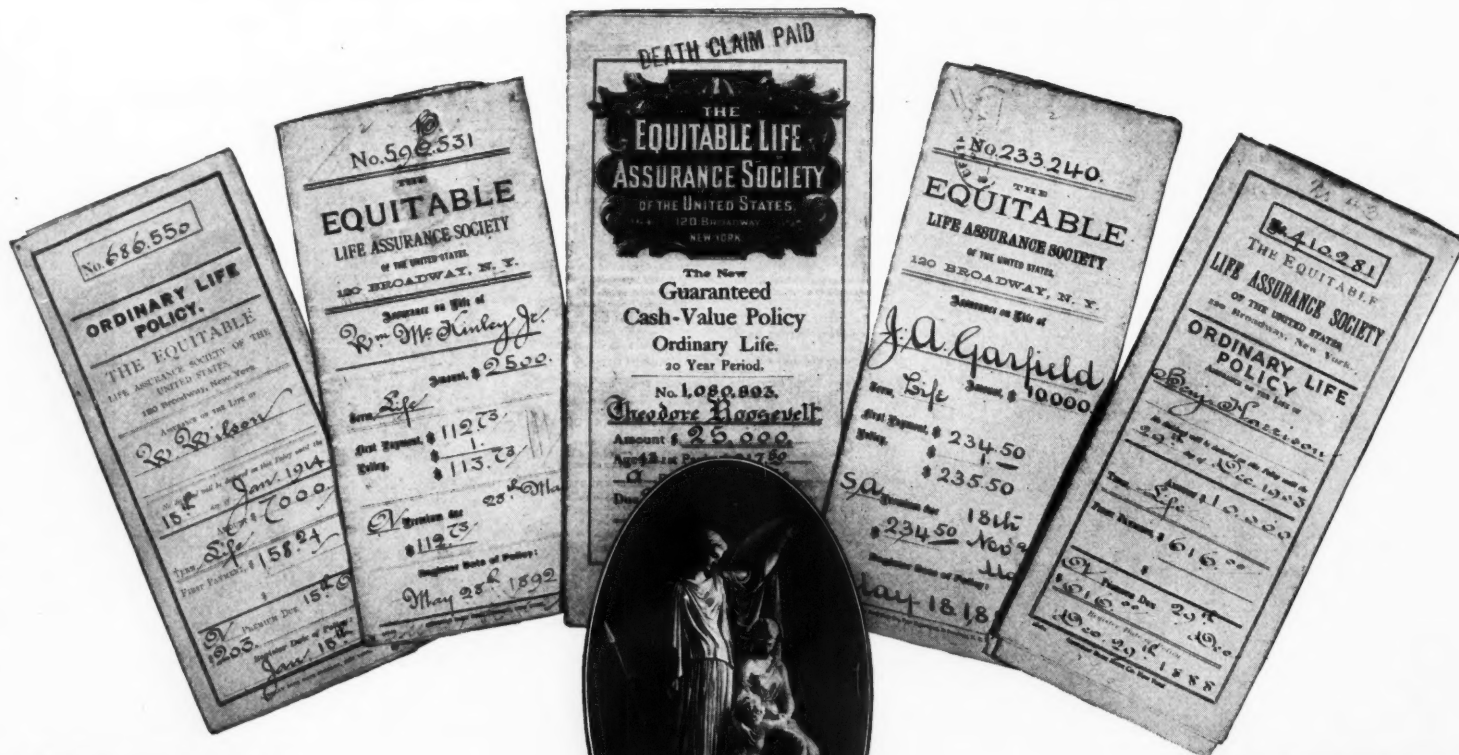 No. 686.550
ORDINARY LIFE
POLICY.
THE EQUITABLE
LIFE ASSURANCE SOCIETY OF THE
UNITED STATES
120 Broadway, New York
ASSURANCE ON THE LIFE OF
W. Wilson
No dividend will be declared on this Policy until the
15th day of Jan. 1914
AMOUNT $ 7000.
TERM, Life
FIRST PAYMENT, $ 158.24
$
PREMIUM DUE 15th
$203
Register Date of Policy:
Jan. 15th
No. 590.531
THE
EQUITABLE
LIFE ASSURANCE SOCIETY
OF THE UNITED STATES,
120 BROADWAY, N. Y.
Assurance on Life of
Wm McKinley Jr.
Amount, $ 2500.
Term, Life
First Payment, $ 112.73
Policy, 1.
$ 113.73
Premium due 28th Ma
$112.73
Register Date of Policy:
May 28th 1892
DEATH CLAIM PAID
THE
EQUITABLE LIFE
ASSURANCE SOCIETY
OF THE UNITED STATES
120 BROADWAY
NEW YORK
The New
Guaranteed
Cash-Value Policy
Ordinary Life.
20 Year Period.
No. 1,080,803.
Theodore Roosevelt
Amount $ 25,000.
No. 233.240.
THE
EQUITABLE
LIFE ASSURANCE SOCIETY
OF THE UNITED STATES,
120 BROADWAY, N. Y.
Assurance on Life of
J. A. Garfield
Amount, $ 10.000.
Term, Life
First Payment, $ 234.50
Policy, 1.
$ 235.50
S.A. Premium due 18th
$ 234.50 Nov
Register Date of Policy:
May 18 18
No. 410.281
THE EQUITABLE
LIFE ASSURANCE SOCIETY
OF THE UNITED STATES
120 Broadway, New York.
ORDINARY LIFE
POLICY
Assurance on the Life of
Benj. Harrison
No dividend will be declared on this Policy until the
29th day of Dec. 1903
Amount $ 10.000
Term, Life
First Payment, $ 616.00
$
Premium Due 29th
$616.00 Dec
Register Date of Policy
Dec. 29th 1888